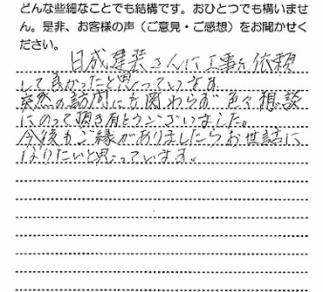 どんな些細なことでも結構です。おひとつでも構いませ
ん。是非、お客様の声（ご意見・ご感想）をお聞かせく
ださい。
日成建装さんに工事を依頼
して良かったと思っています。
突然の訪問にも関わらず色々相談
にのって頂き有とうございました。
今後もご縁がありましたらお世話に
なりたいと思っています。